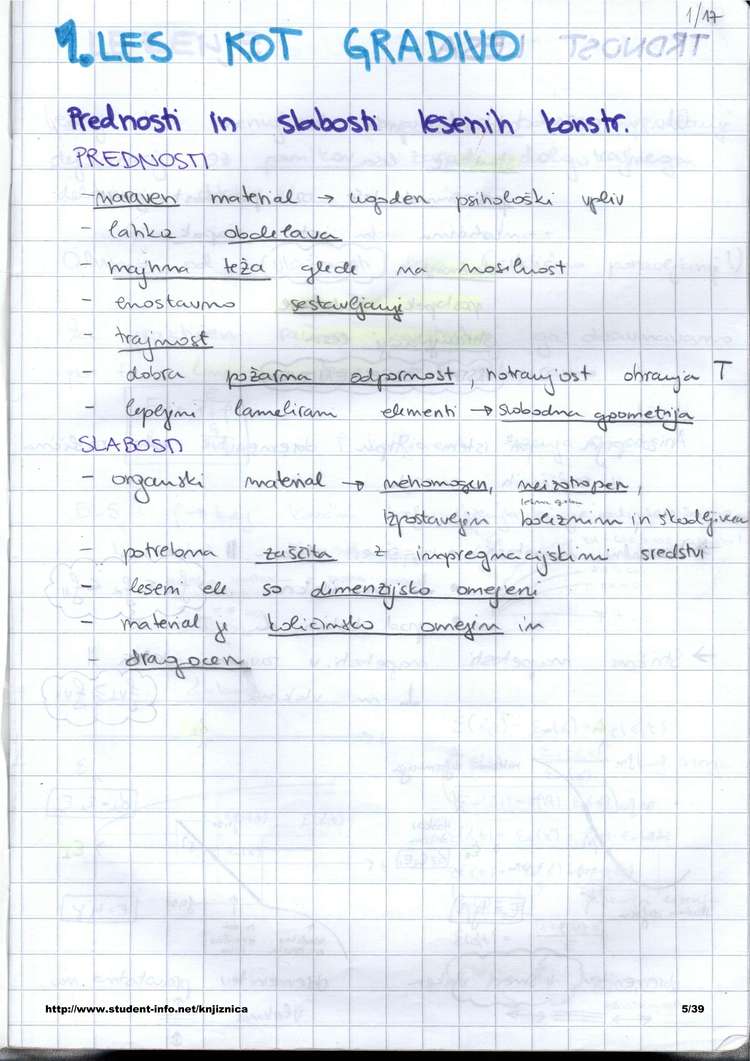 1/17
1. LES KOT GRADIVO
Prednosti in slabosti lesenih konstr.
PREDNOSTI
- naraven material → ugoden psihološki vpliv
- lahka obdelava
- majhna teža glede na nosilnost
- enostavno sestavljanje
- trajnost
- dobra požarna odpornost, notranjost ohranja T
- lepljeni lamelirani elementi → svobodna geometrija
SLABOSTI
- organski material → nehomogen, neizotropen,
izpostavljen boleznim in škodljivcem
- potrebna zaščita z impregnacijskimi sredstvi
- leseni ele so dimenzijsko omejeni
- material je količinsko omejen in
- dragocen
http://www.student-info.net/knjiznica 5/39